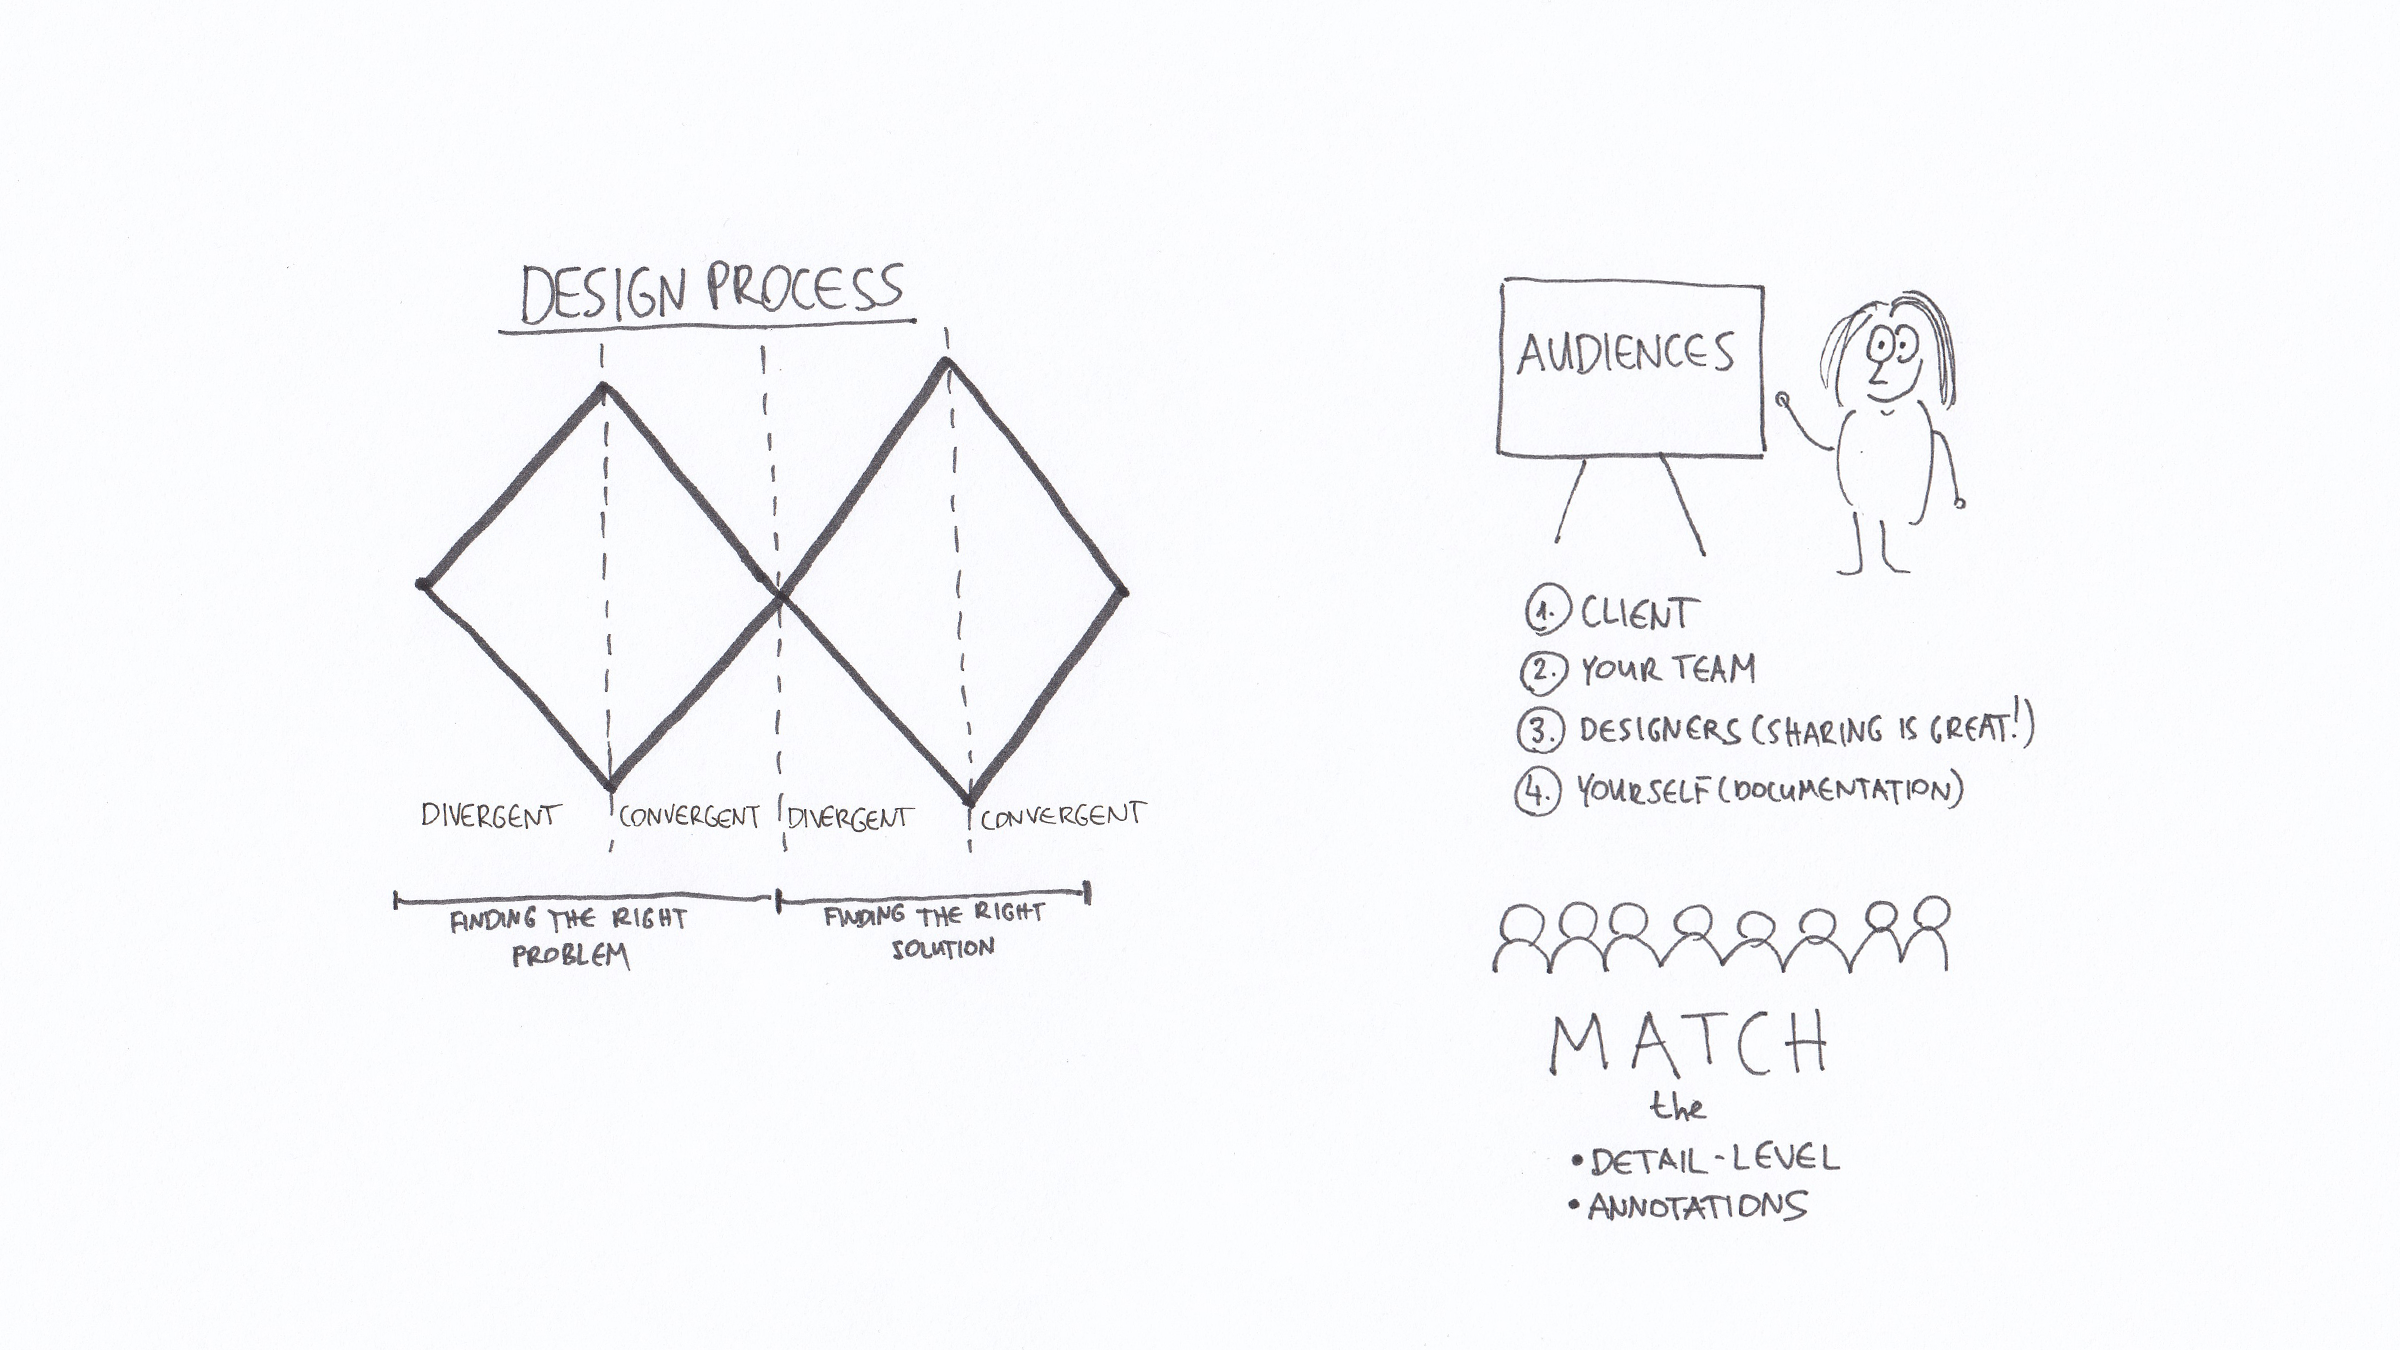 DESIGN PROCESS
DIVERGENT
CONVERGENT
DIVERGENT
CONVERGENT
FINDING THE RIGHT
PROBLEM
FINDING THE RIGHT
SOLUTION
AUDIENCES
1. CLIENT
2. YOUR TEAM
3. DESIGNERS (SHARING IS GREAT!)
4. YOURSELF (DOCUMENTATION)
MATCH
the
• DETAIL-LEVEL
• ANNOTATIONS